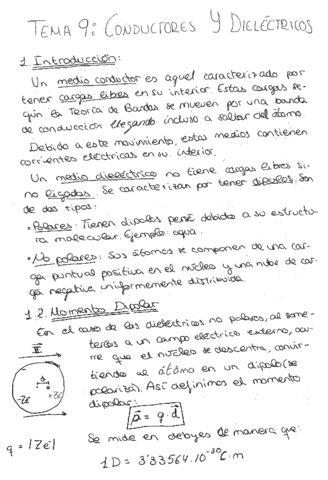 TEMA 9: CONDUCTORES Y DIELÉCTRICOS
1. Introducción:
Un medio conductor es aquel caracterizado por
tener cargas libres en su interior. Estas cargas se-
gún la Teoría de Bandas se mueven por una banda
de conducción llegando incluso a saltar del átomo.
Debido a este movimiento, estos medios contienen
corrientes eléctricas en su interior.
Un medio dieléctrico no tiene cargas libres si-
no ligadas. Se caracterizan por tener dipolos. Son
de dos tipos:
• Polares: Tienen dipolos perm. debidos a su estructu-
ra molecular. Ejemplo: agua.
• No polares: Sus átomos se componen de una car-
ga puntual positiva en el núcleo y una nube de car-
ga negativa uniformemente distribuida.
1.2. Momento Dipolar
En el caso de los dieléctricos no polares, al some-
terlos a un campo eléctrico externo, ocu-
rre que el núcleo se descentra, convir-
tiendo al átomo en un dipolo (se
polariza). Así definimos el momento
dipolar:
E
d
-Ze
+Ze
p = q · d
q = |Ze|
Se mide en debyes de manera que:
1D = 3'33564·10⁻³⁰ C·m